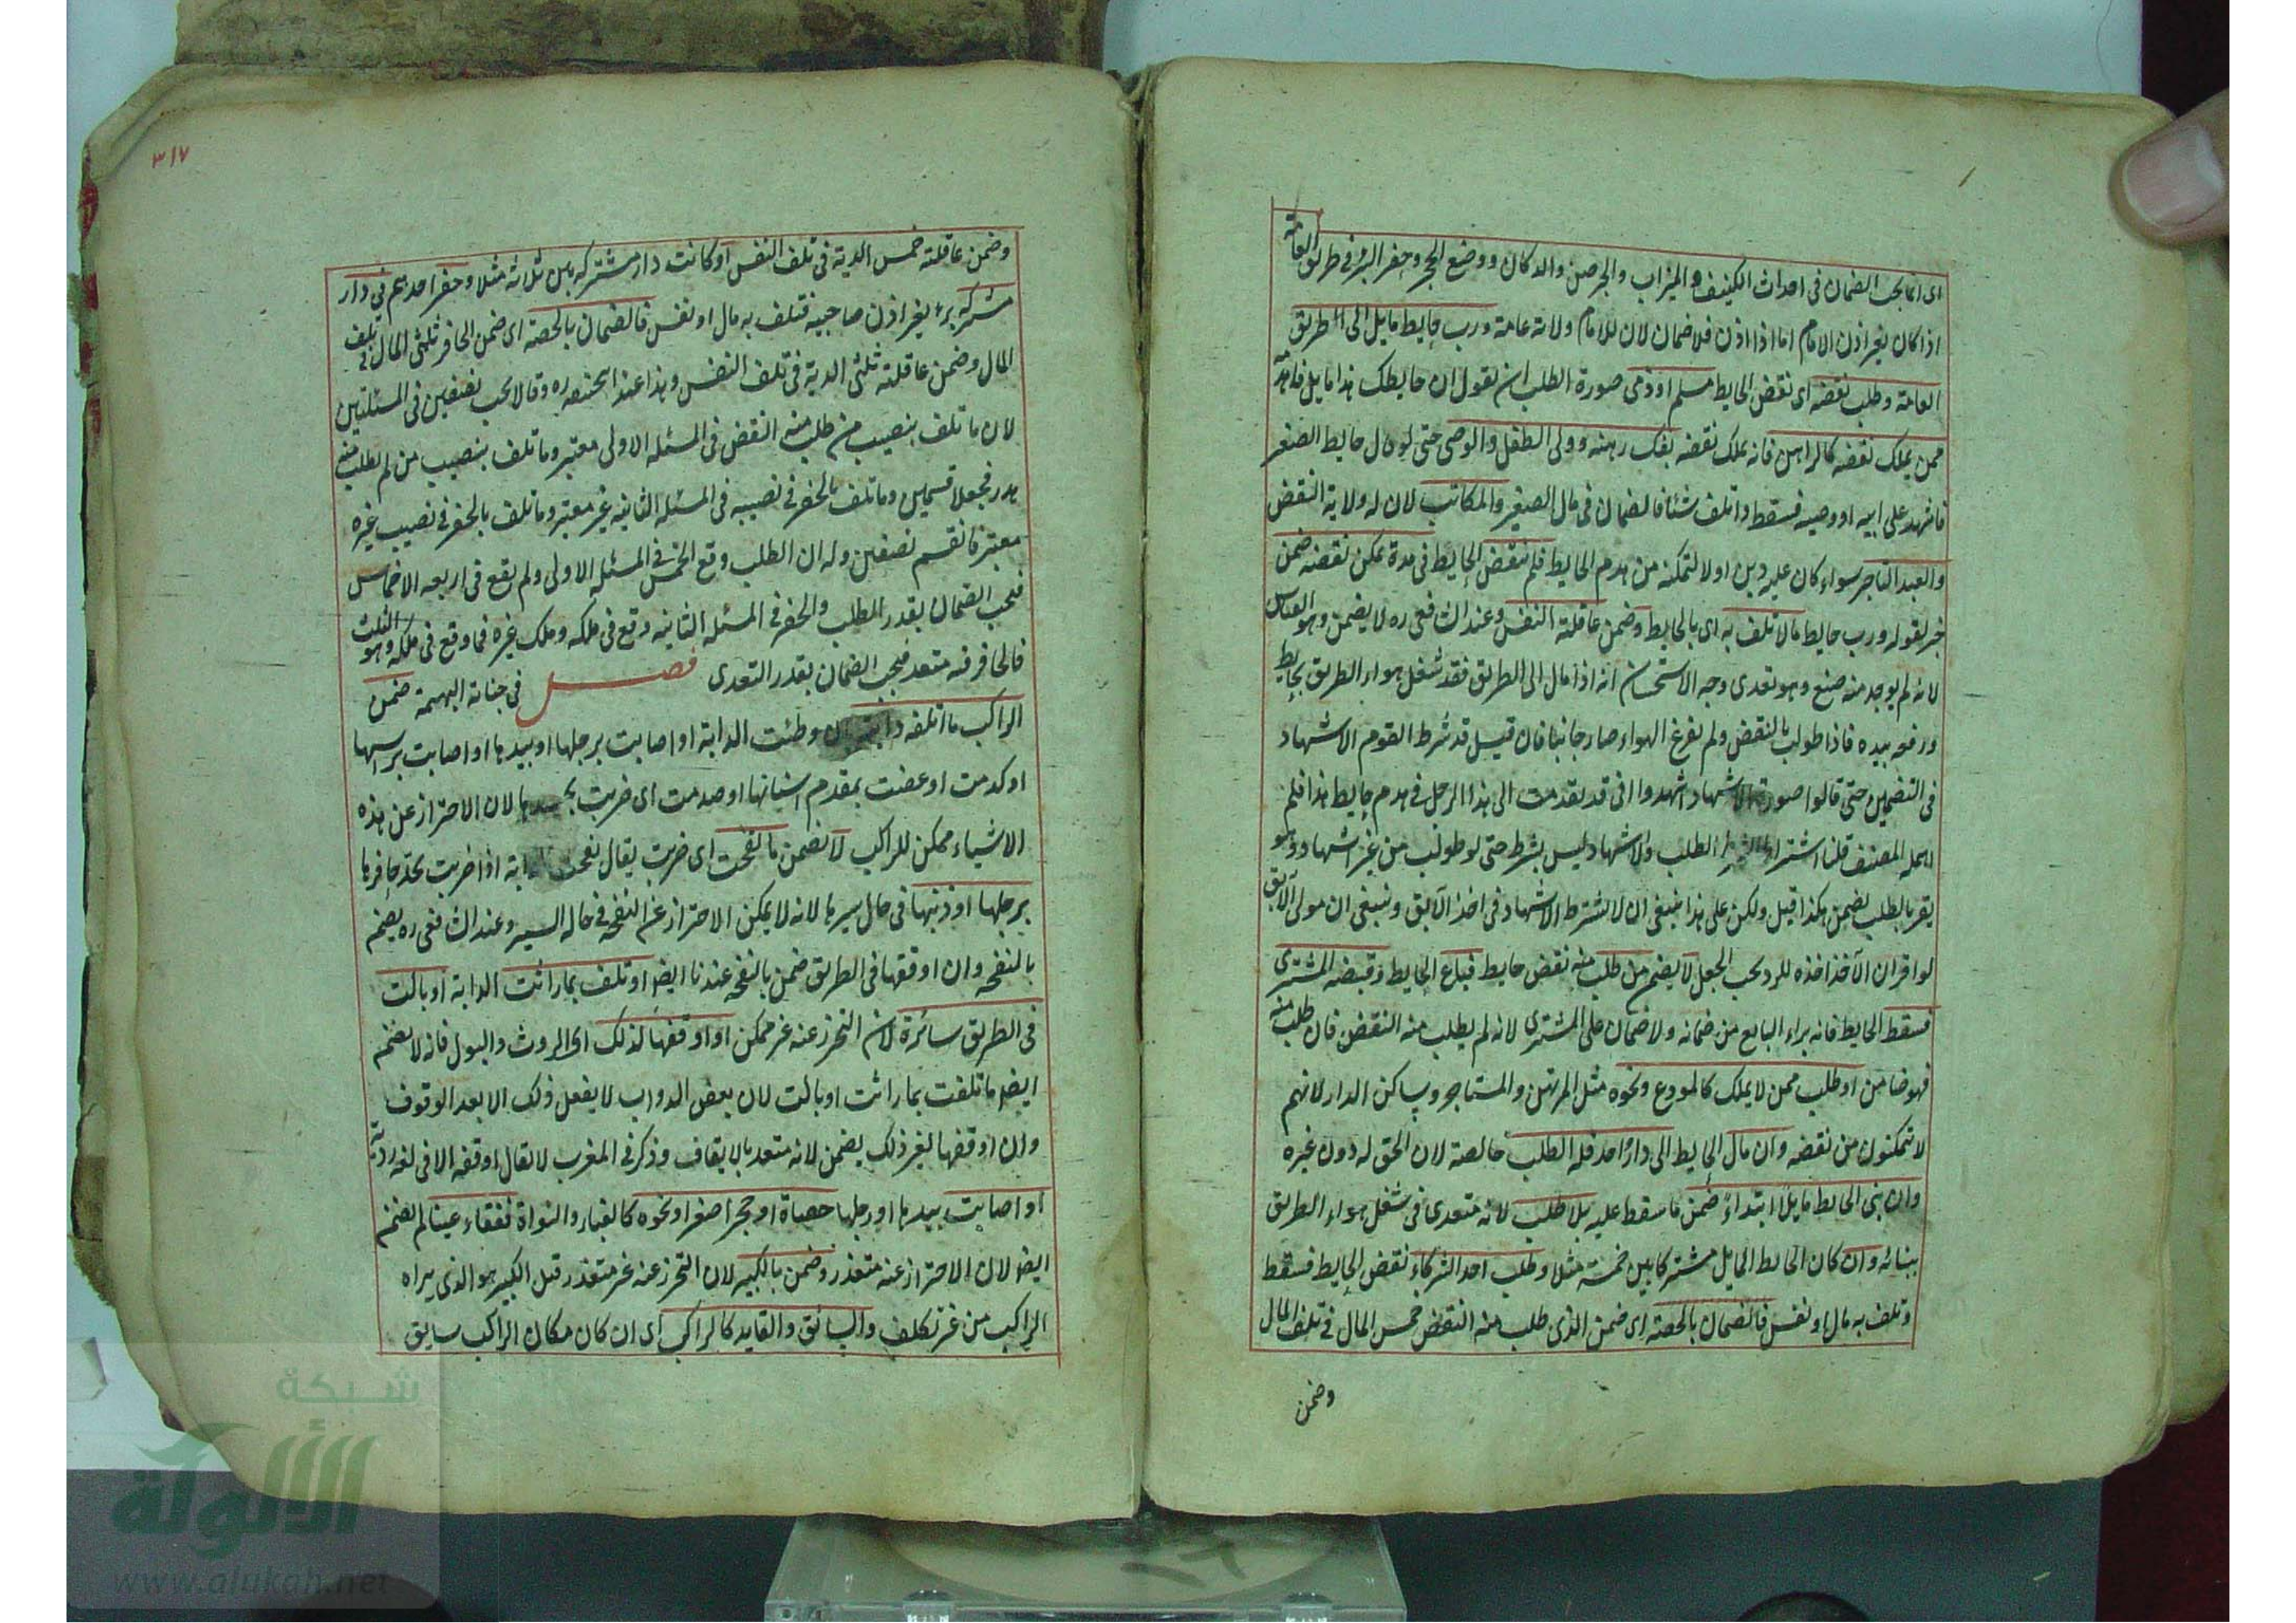 اى انما يجب الضمان فى احداث الكنيف والميزاب والجرصن والدكان ووضع الحجر وحفر البئر فى طريق العامة
اذا كان بغير اذن الامام اما اذا اذن فلا ضمان لان للامام ولاية عامة ورب حايط مايل الى الطريق
العامة وطلب نقضه اى نقض الحايط مسلم او ذمى صورة الطلب ان يقول ان حايطك هذا مايل فاهدمه
ممن يملك نقضه كالراهن فانه يملك نقضه بفك رهنه وولى الطفل والوصى حتى لو مال حايط الصغير
فاشهد على ابيه او وصيه فسقط واتلف شئا فالضمان فى مال الصغير والمكاتب لان له ولاية النقض
والعبد التاجر سواء كان عليه دين او لا لتمكنه من هدم الحايط فلم ينقض الحايط فى مدة يمكن نقضه ضمن
خبر لقوله ورب حايط مالا تلف به اى بالحايط وضمن عاقلته النفس وعند الشافعى ره لا يضمن وهو القياس
لانه لم يوجد منه صنع وهو تعدى وجه الاستحسان انه اذا مال الى الطريق فقد شغل هواء الطريق بحايط
ورفعه بيده فاذا طولب بالنقض ولم يفرغ الهواء صار جانيا فان قيل قد شرط القوم الاشهاد
فى التضمين حتى قالوا صورة الاشهاد اشهدوا انى قد تقدمت الى هذا الرجل فى هدم حايط هذا فلم
اهمله المصنف قلنا اشتراط الطلب والاشهاد ليس بشرط حتى لو طولب من غير اشهاد وهو
يقر بالطلب يضمن هكذا قيل ولكن على هذا ينبغى ان لا يشترط الاشهاد فى اخذ الآبق وينبغى ان مولى الآبق
لو اقر ان الآخذ اخذه للرد يجب الجعل لا يضمن من طلب منه نقض حايط فباع الحايط وقبضه المشترى
فسقط الحايط فانه براء البايع من ضمانه ولا ضمان على المشترى لانه لم يطلب منه النقض فان طلب منه
فهو ضامن او طلب ممن لا يملك كالمودع ونحوه مثل المرتهن والمستاجر وساكن الدار لانهم
لا يتمكنون من نقضه وان مال الحايط الى دار احد فله الطلب خالصة لان الحق له دون غيره
وان بنى الحايط مايلا ابتداء ضمن ما سقط عليه بلا طلب لانه متعدى فى شغل هواء الطريق
ببنائه وان كان الحايط المايل مشتركا بين خمسة مثلا وطلب احد الشركاء نقض الحايط فسقط
وتلف به مال او نفس فالضمان بالحصة اى ضمن الذى طلب منه النقض خمس المال فى تلف المال
وضمن
٣١٧
وضمن عاقلته خمس الدية فى تلف النفس او كانت دار مشتركة بين ثلاثة مثلا وحفر احدهم فى دار
مشتركة بئرا بغير اذن صاحبيه فتلف به مال او نفس فالضمان بالحصة اى ضمن الحافر ثلثى المال فى تلف
المال وضمن عاقلته ثلثى الدية فى تلف النفس وهذا عند ابيحنيفه ره وقالا يجب نصفين فى المسئلتين
لان ما تلف بنصيب من طلب منه النقض فى المسئلة الاولى معتبر وما تلف بنصيب من لم يطلب منه
هدر فجعلا قسمين وما تلف بالحفر فى نصيبه فى المسئلة الثانية غير معتبر وما تلف بالحفر فى نصيب غيره
معتبر فانقسم نصفين وله ان الطلب وقع الخمس فى المسئلة الاولى ولم يقع فى اربعة الاخماس
فيجب الضمان بقدر الطلب والحفر فى المسئلة الثانية وقع فى ملكه وملك غيره فما وقع فى ملكه وهو الثلث
فالحافر فيه متعد فيجب الضمان بقدر التعدى فصل فى جناية البهيمة ضمن
الراكب ما اتلفه دابته ان وطئت الدابة او اصابت برجلها او بيدها او اصابت براسها
او كدمت او عضت بمقدم اسنانها او صدمت اى ضربت بجسدها لان الاحتراز عن هذه
الاشياء ممكن للراكب لا يضمن ما نفحت اى ضربت يقال نفحت الدابة اذا ضربت بحد حافرها
برجلها او ذنبها فى حال سيرها لانه لا يمكن الاحتراز عن النفحة فى حالة السير وعند الشافعى ره يضمن
بالنفحة وان اوقفها فى الطريق ضمن بالنفحة عندنا ايضا او تلف بما راثت الدابة او بالت
فى الطريق سائرة لان التحرز عنه غير ممكن او اوقفها لذلك اى الروث والبول فانه لا يضمن
ايضا ما تلفت بما راثت او بالت لان بعض الدواب لا يفعل ذلك الا بعد الوقوف
وان اوقفها لغير ذلك يضمن لانه متعد بالايقاف وذكر فى المغرب لا يقال اوقفه الا فى لغة ردية
او اصابت بيدها او رجلها حصاة او حجرا صغيرا ونحوه كالغبار والنواة ففقاء عينا لم يضمن
ايضا لان الاحتراز عنه متعذر وضمن بالكبير لان التحرز عنه غير متعذر قيل الكبير هو الذى يراه
الراكب من غير تكلف والسائق والقايد كالراكب اى ان كان مكان الراكب سايق
شبكة
الألوكة
www.alukah.net